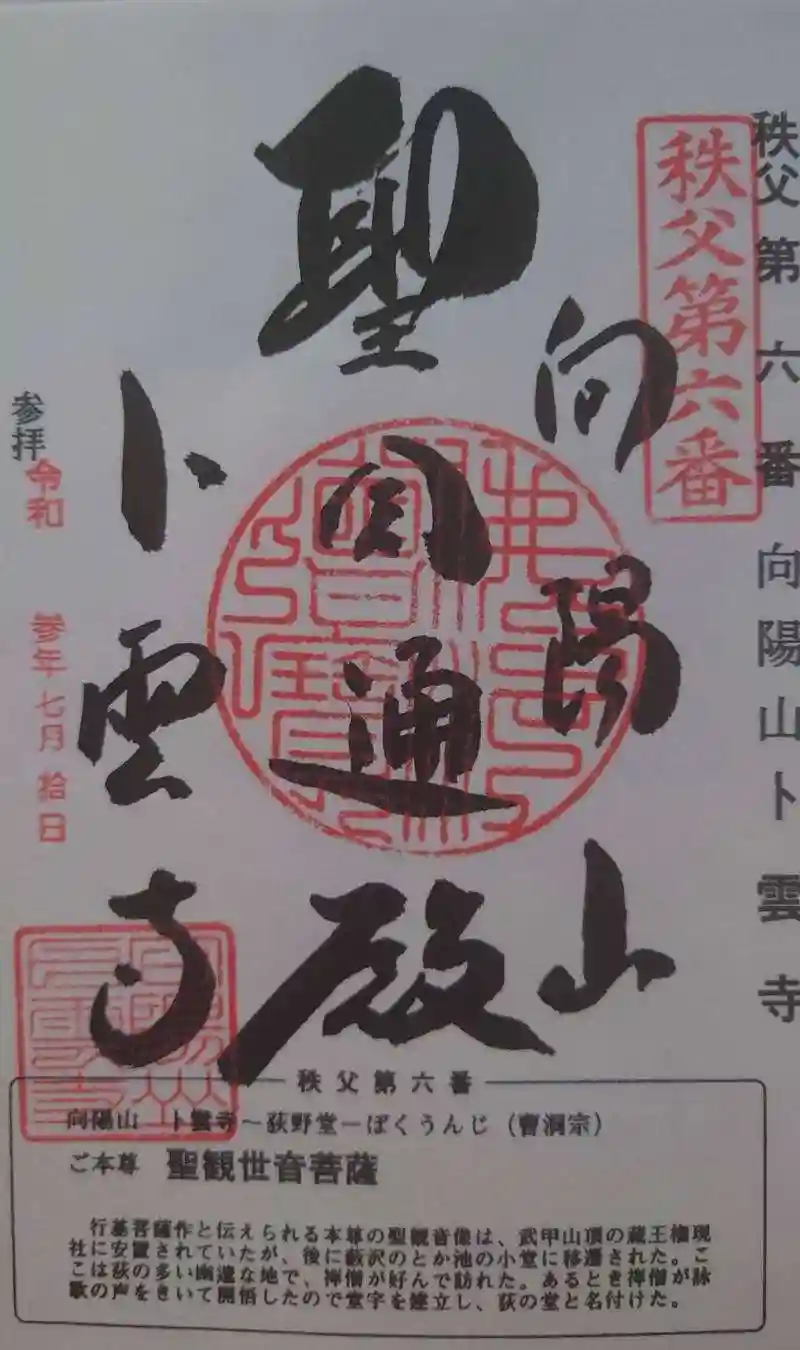 秩父第六番向陽山卜雲寺
秩父第六番
向陽山
聖円通殿
卜雲寺
参拝
令和参年七月拾日
秩父第六番
向陽山 卜雲寺〜荻野堂ーぼくうんじ(曹洞宗)
ご本尊 聖観世音菩薩
行基菩薩作と伝えられる本尊の聖観音像は、武甲山頂の蔵王権現
社に安置されていたが、後に藪沢のとか池の小堂に移遷された。こ
こは荻の多い幽邃な地で、禅僧が好んで訪れた。あるとき禅僧が詠
歌の声をきいて開悟したので堂宇を建立し、荻の堂と名付けた。